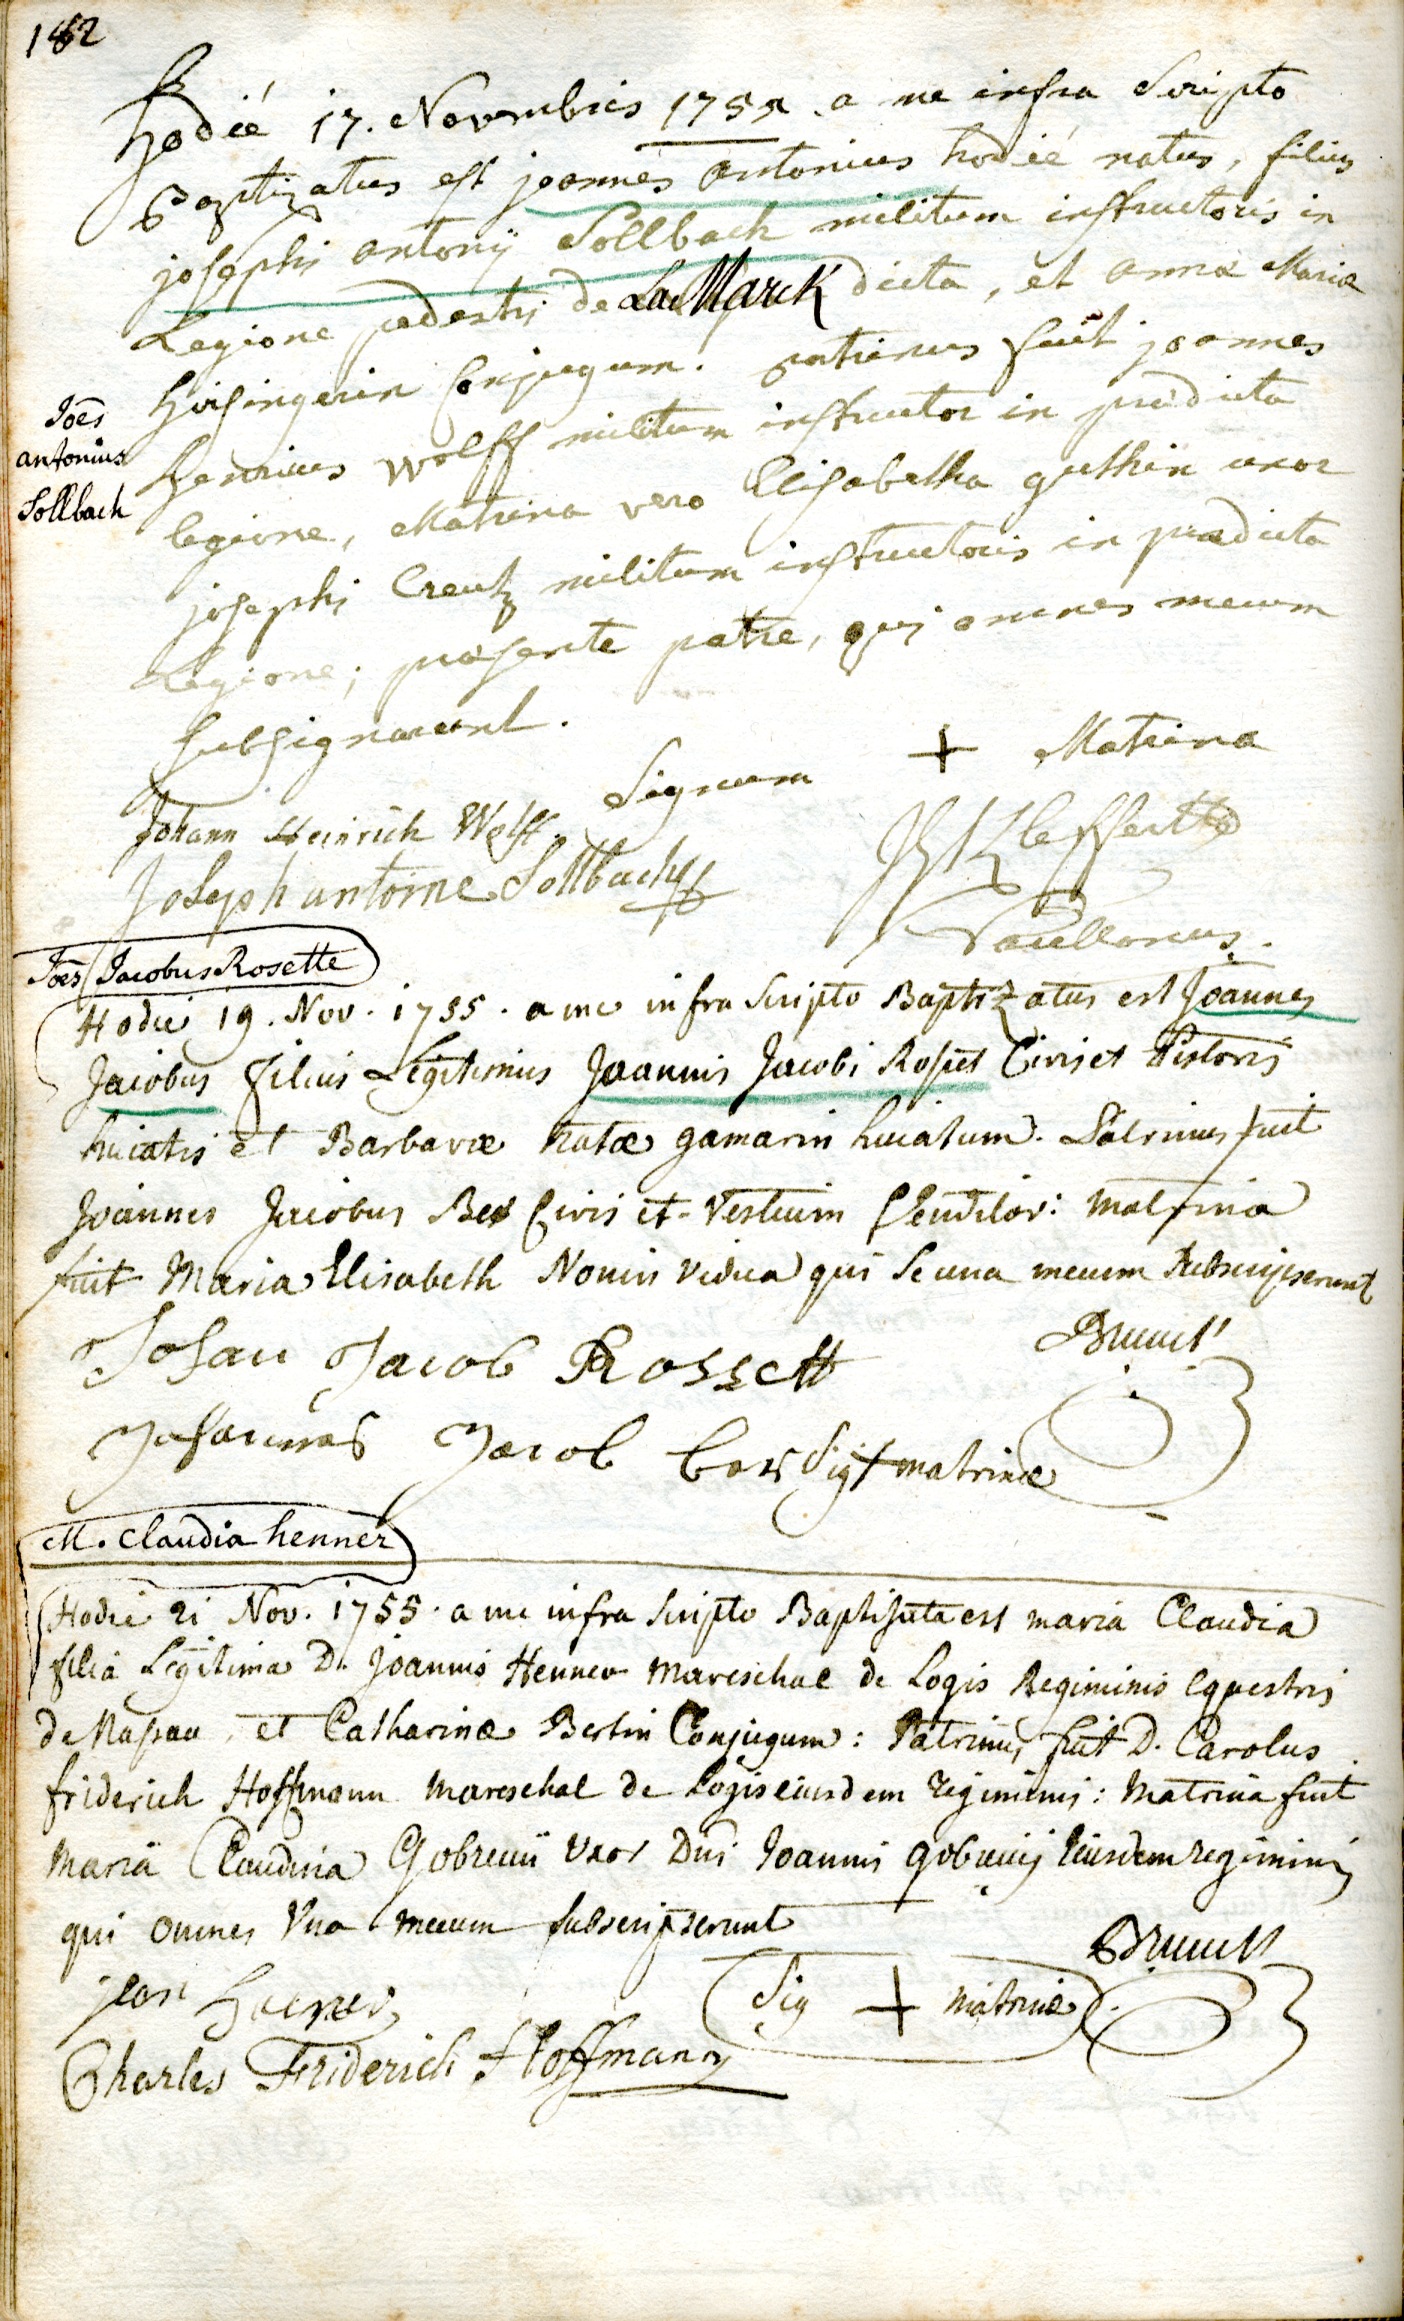 182
hodié 17. Novembris 1755 a me infra Scripto
Baptizatus est joannes antonius hodié natus, filius
josephi antonij Sollbach militum instructoris in
Legione pedestri de La Marck dicta, et annæ Mariæ
conjugum. patrinus fuit joannes
henricus wolff militum instructor in prædicta
legione, Matrina vero Elisabetha guthin uxor
josephi Creutz militum instructoris in prædicta
Legione; præsente patre, qui omnes mecum
subsignarunt.
Joes
antonius
Sollbach
Signum + Matrina
Johann Heinrich Wolff.
Joseph antoine Sollbach
Joes Jacobus Rosette
Hodie 19. Nov. 1755. a me infra scripto Baptizatus est Joannes
Jacobus filius Legitimus Joannis Jacobi Roset Civis et Pistoris
huiatis et Barbaræ natæ gamarin huiatum. Patrinus fuit
Joannes Jacobus Bex Civis et Vestium Venditor: matrina
fuit Maria Elisabeth Nonin vidua qui se una mecum subscripserunt
Johan Jacob Rossett
Johannes Jacob Sig + matrinæ
M. Claudia henner
Hodie 21 Nov. 1755. a me infra scripto Baptisata est maria Claudia
filia Legitima D. Joannis Henner mareschal de Logis Regiminis equestris
de Nassau, et Catharinæ Bertin Conjugum: Patrinus fuit D. Carolus
friderich Hoffmann mareschal de Logis eiusdem regiminis: matrina fuit
maria Claudina uxor Dni Joannis eiusdem regiminis
qui omnes una mecum subscripserunt
jean
Sig + matrinæ
Charles Friderich Hoffmann